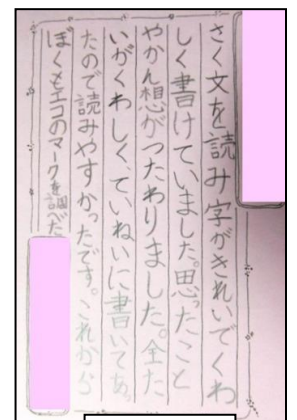 さく文を読み字がきれいでくわ
しく書けていました。思ったこと
やかん想がつたわりました。全た
いがくわしく、ていねいに書いてあっ
たので読みやすかったです。これから
ぼくもエコのマークを調べた